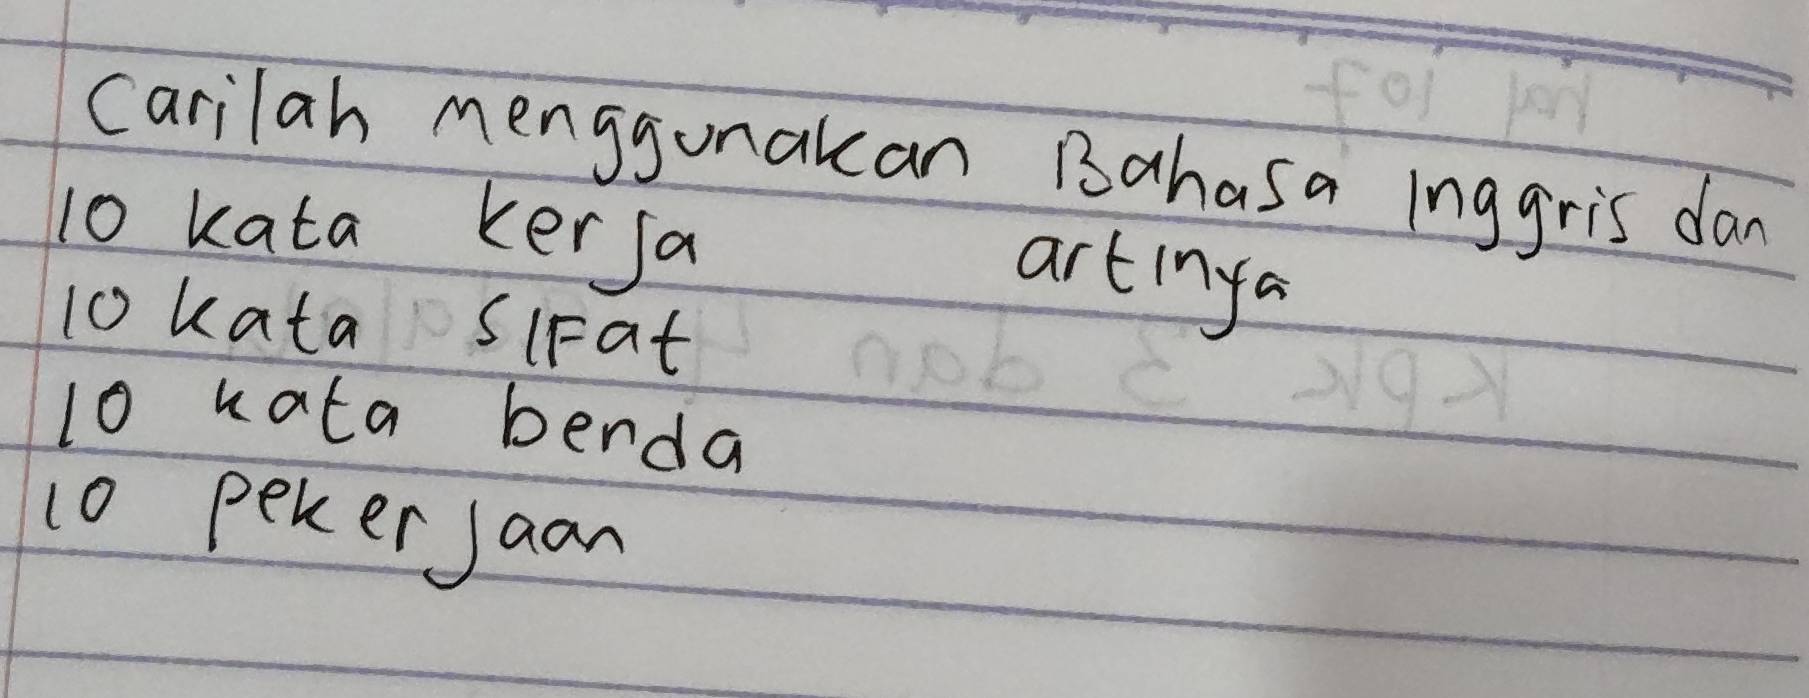 Carilah menggunakan Bahasa Inggris dan
artinya
10 kata kerja
10 kata sifat
10 kata benda
10 pekerjaan
hal 107
Kpk 3 dan 4